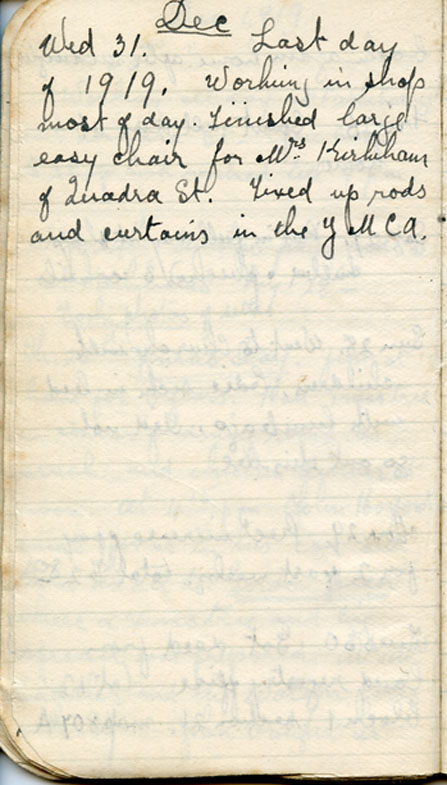 Dec
Wed 31. Last day
of 1919. Working in shop
most of day. Finished large
easy chair for Mrs Kirkham
of Quadra St. Fixed up rods
and curtains in the Y M C A.